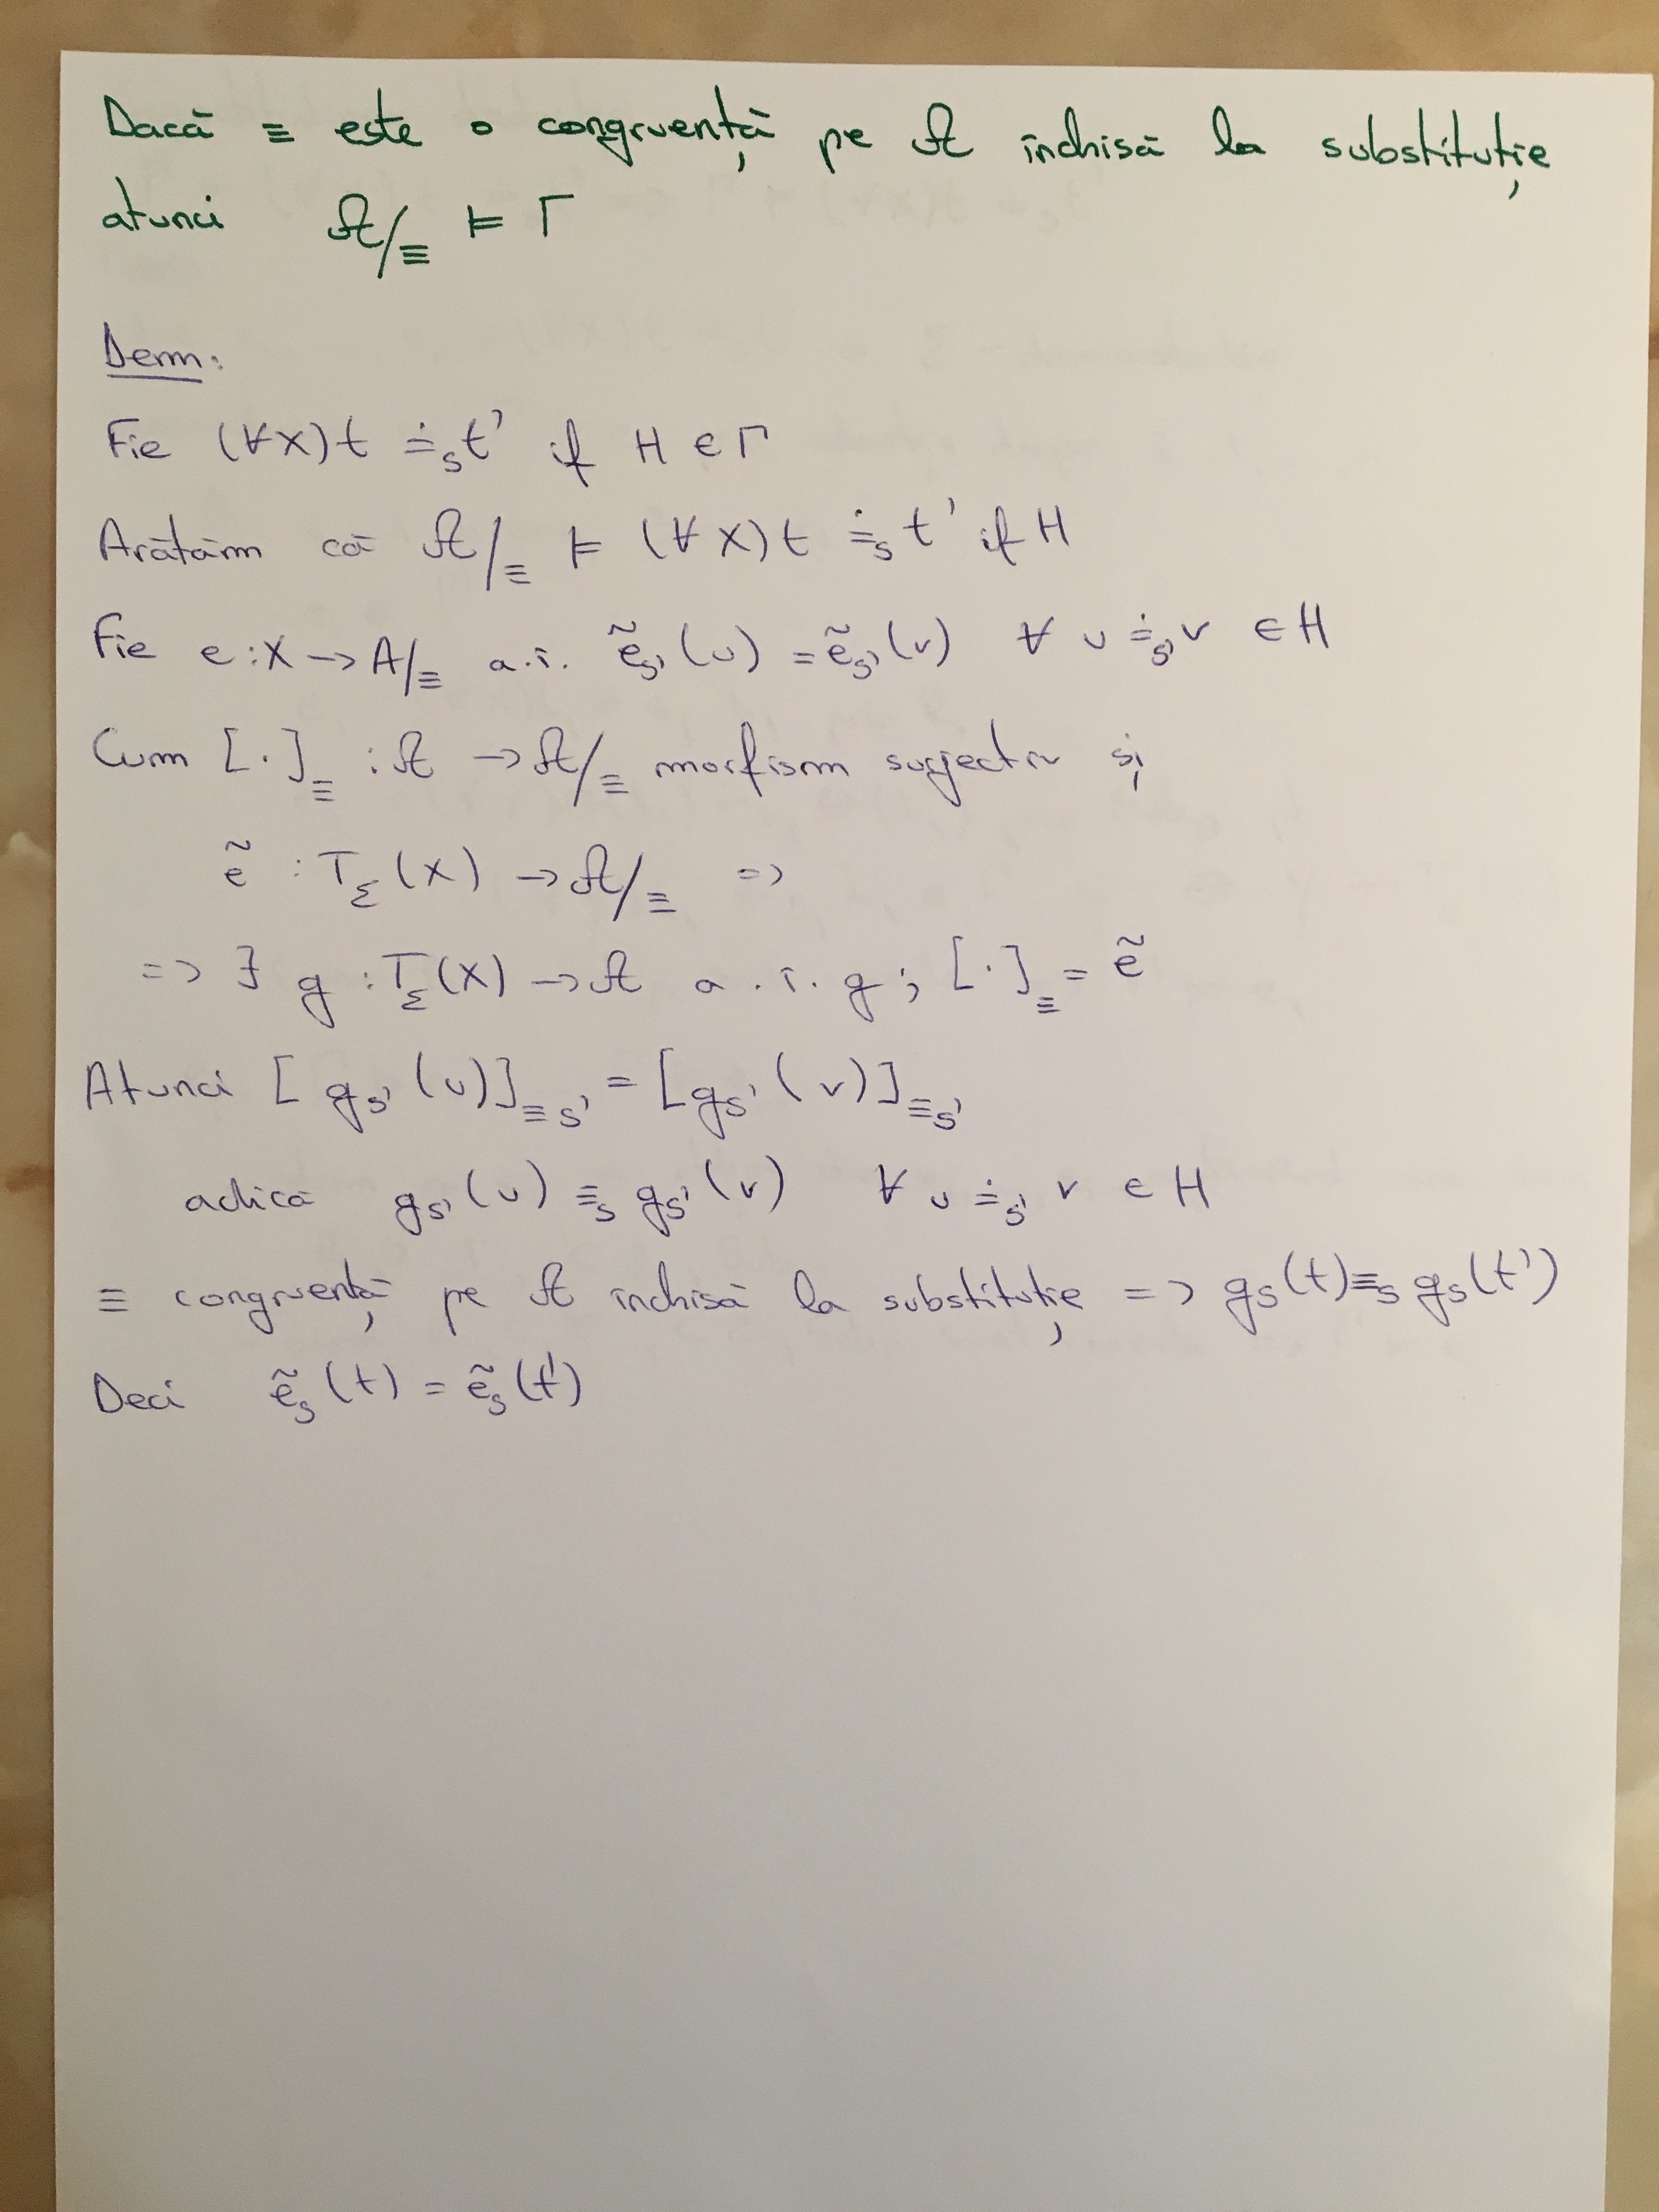 Dacă ≡ este o congruență pe 𝒜 închisă la substituție
atunci 𝒜/≡ ⊨ Γ
Dem:
Fie (∀X)t ≐ₛ t' if H ∈ Γ
Arătăm că 𝒜/≡ ⊨ (∀X)t ≐ₛ t' if H
Fie e : X → A/≡ a.î. ẽₛ'(u) = ẽₛ'(v) ∀ u ≐ₛ' v ∈ H
Cum [·]≡ : 𝒜 → 𝒜/≡ morfism surjectiv și
ẽ : T_Σ(X) → 𝒜/≡ =>
=> ∃ g : T_Σ(X) → 𝒜 a.î. g ; [·]≡ = ẽ
Atunci [gₛ'(u)]≡ₛ' = [gₛ'(v)]≡ₛ'
adică gₛ'(u) ≡ₛ gₛ'(v) ∀ u ≐ₛ' v ∈ H
≡ congruență pe 𝒜 închisă la substituție => gₛ(t) ≡ₛ gₛ(t')
Deci ẽₛ(t) = ẽₛ(t')